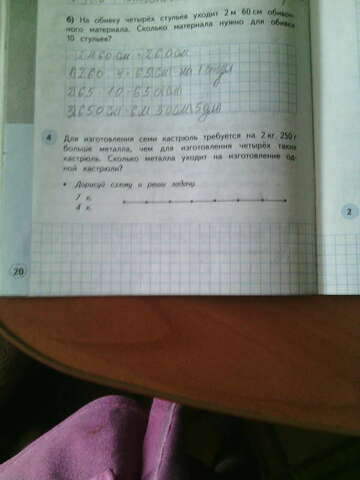 б) На обивку четырёх стульев уходит 2 м 60 см обивоч-
ного материала. Сколько материала нужно для обивки
10 стульев?
2м60см = 260см
1) 260 : 4 = 65(см) на 1 стул
2) 65 · 10 = 650(см)
3) 650см = 6м 50см
4
Для изготовления семи кастрюль требуется на 2 кг 250 г
больше металла, чем для изготовления четырёх таких
кастрюль. Сколько металла уходит на изготовление од-
ной кастрюли?
• Дорисуй схему и реши задачу.
7 к.
4 к.
20
2